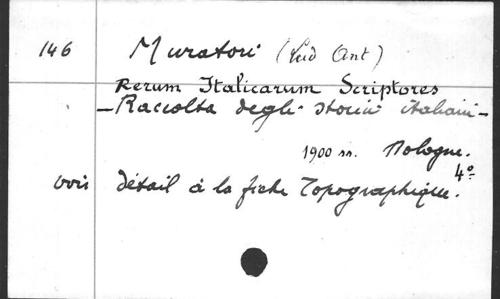 146 Muratori (Lud Ant)
Rerum Italicarum Scriptores
— Raccolta degli storici italiani —
1900 ss. Bologne.
4°
voir détail à la fiche Topographique.